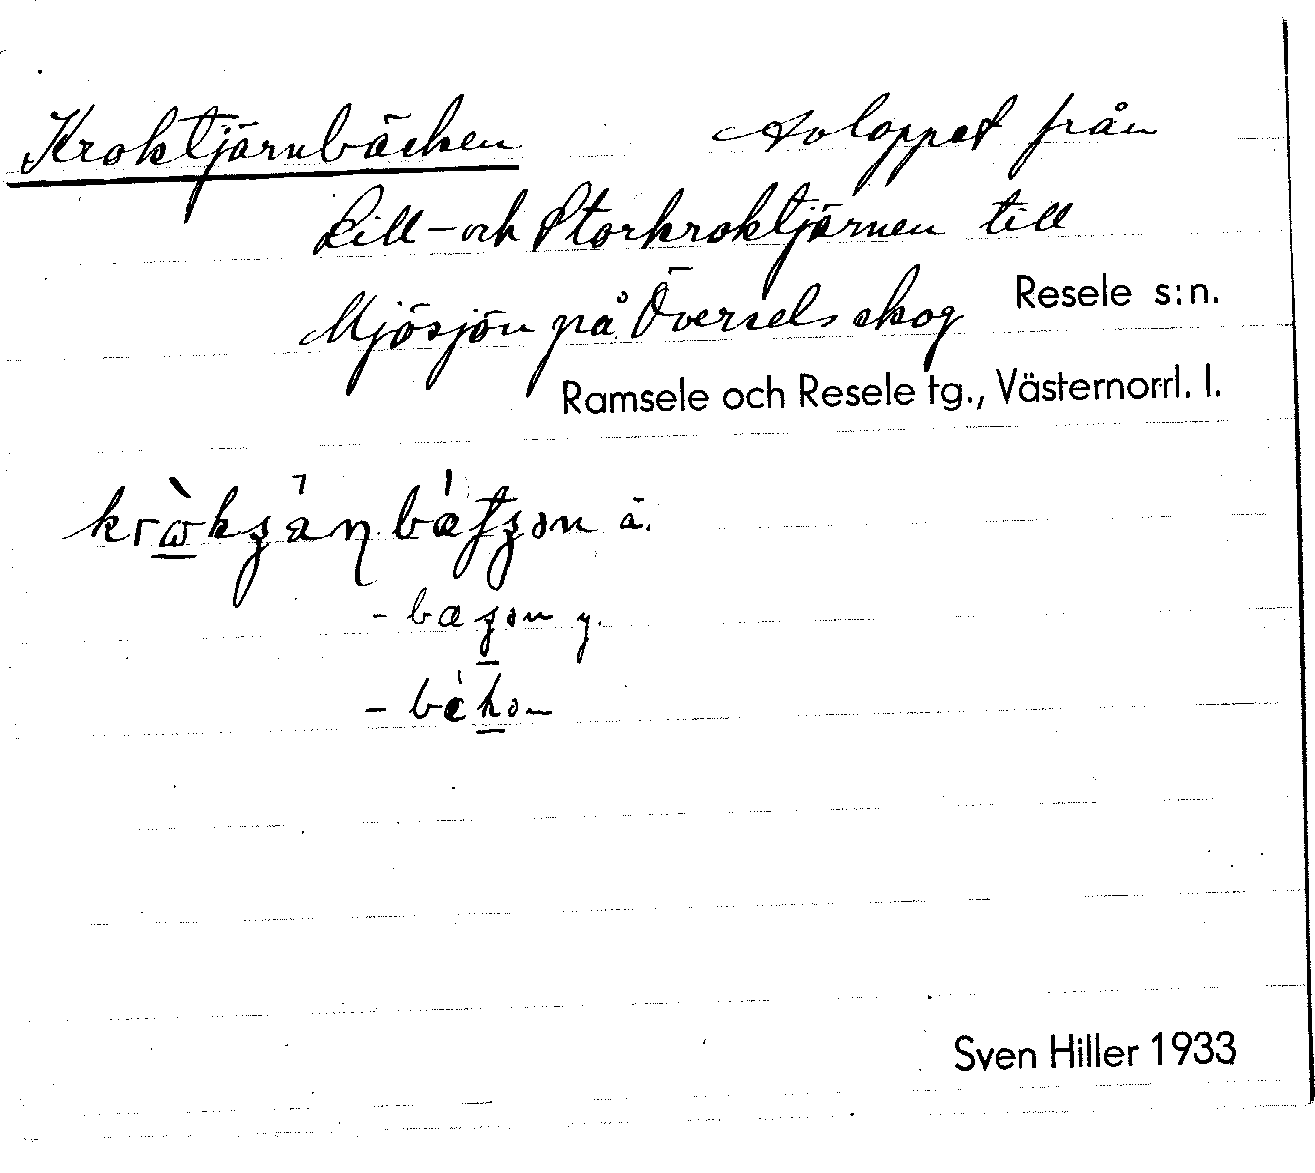 Kroktjärnbäcken Avloppet från
Lill- och Storkroktjärnen till
Mjösjön på Översels skog Resele s:n.
Ramsele och Resele tg., Västernorrl. l.
ä.
y.
Sven Hiller 1933